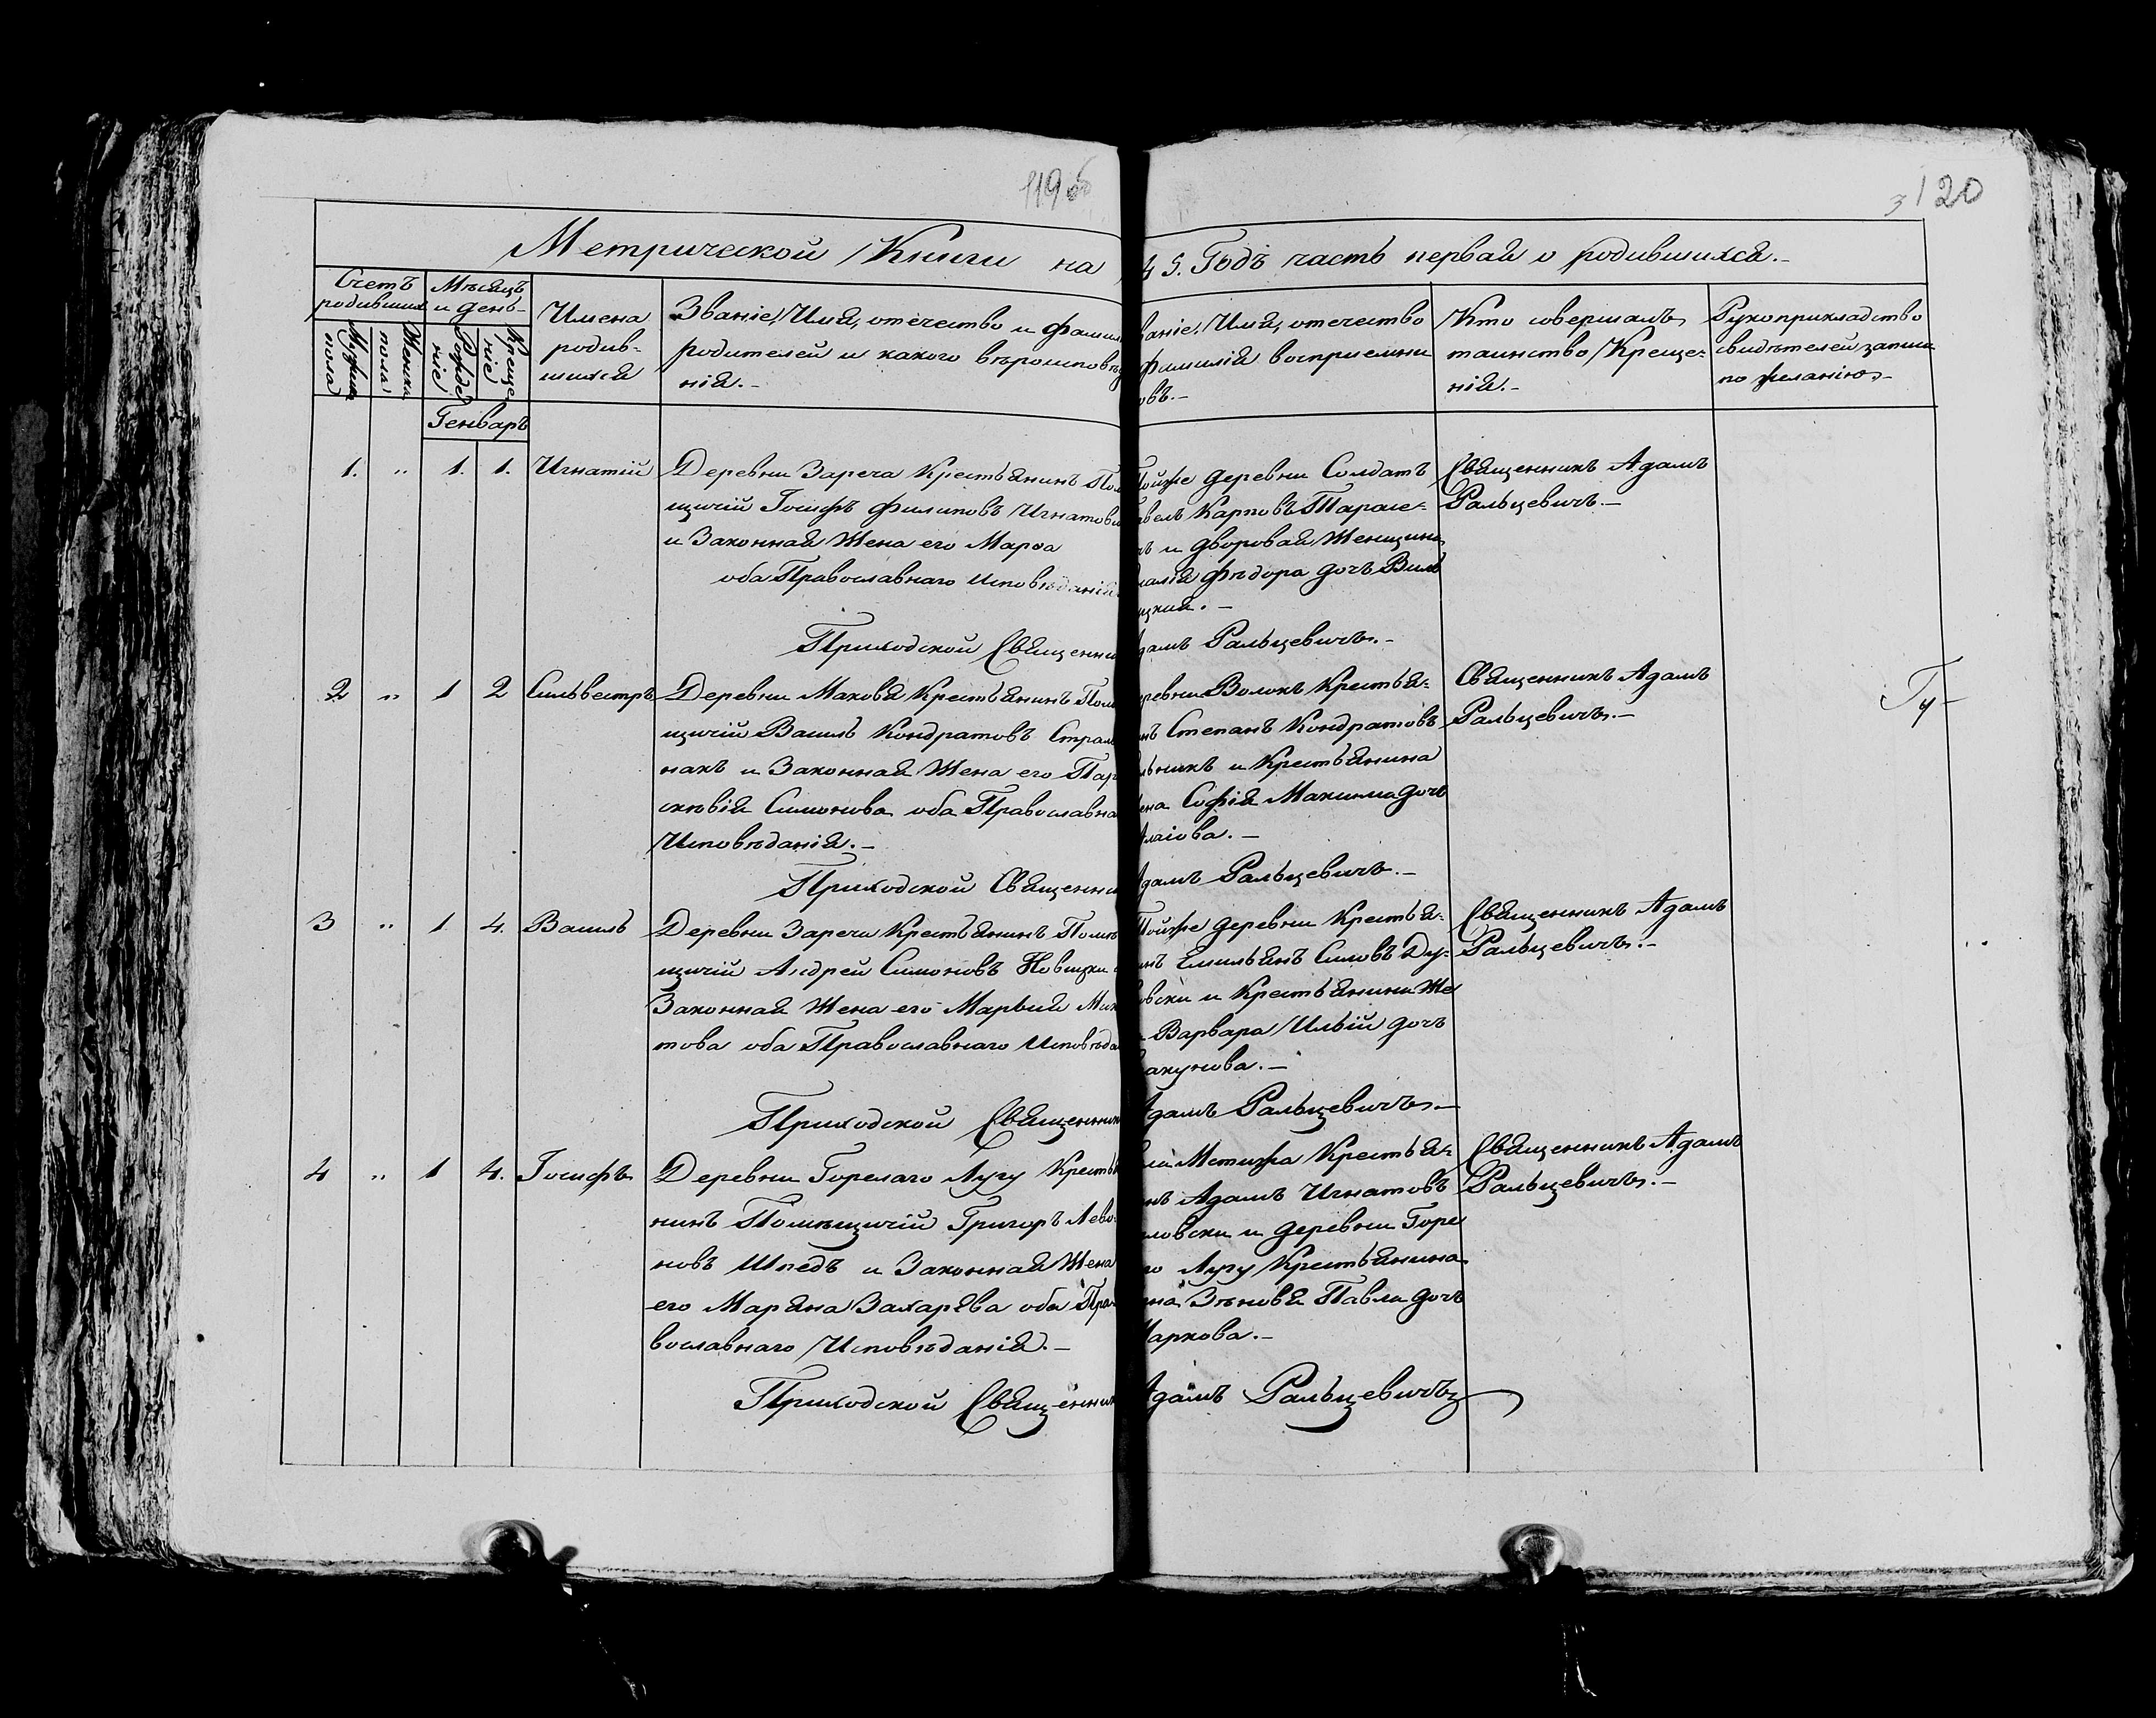 119 об
3 120
Метрической Книги на
45. Годъ часть первая о родившихся.-
Счетъ родившихся
Мѣсяцъ и день-
Мужска пола
Женска пола
Рожденіе
Крещеніе
Имена
родив-
шихся
Званіе, Имя, отечество и фамил
родителей и какого вѣроисповѣд
нія.-
ваніе, Имя, отечество
фамилія воспріемни
овъ.-
Кто совершалъ
таинство Креще-
нія.-
Рукоприкладство
свидѣтелей записи
по желанію.-
Генварь
1. " 1. 1. Игнатій
Деревни Зареча Крестьянинъ Пом
щичій Іосифъ Филиповъ Игнатови
и Законная Жена его Марѳа
оба Православнаго Исповѣданія
Тойже деревни Солдатъ
авелъ Карповъ Тарасе-
ъ и дворовая Женщина
талія Фѣдора дочъ Виль
ицкая.-
Священникъ Адамъ
Ральцевичъ.-
Приходской Священни
Адамъ Ральцевичъ.-
2 " 1 2 Сильвестръ
Деревни Махова Крестьянинъ Пом
щичій Василь Кондратовъ Страль
накъ и Законная Жена его Пар
скѣвія Симонова оба Православна
Исповѣданія.-
еревни Волокъ Крестья-
нъ Степанъ Кондратовъ
льникъ и Крестьянина
ена Софія Максима дочъ
лаіова.-
Священникъ Адамъ
Ральцевичъ.-
Приходской Священни
Адамъ Ральцевичъ.-
3 " 1 4. Василь
Деревни Зареча Крестьянинъ Помѣ
щичій Андрей Симоновъ Новицки
Законная Жена его Марьия Мик
това оба Православнаго Исповѣда
Тойже деревни Крестья-
нъ Емильянъ Симовъ Ду-
овски и Крестьянина Же
Варвара Ильіи дочъ
акунова.-
Священникъ Адамъ
Ральцевичъ.-
Приходской Священник
Адамъ Ральцевичъ.-
4 " 1 4. Іосифъ
Деревни Горелаго Лугу Крестья
нинъ Помѣщичій Григоръ Лево-
новъ Шпедъ и Законная Жена
его Маряна Захарѣва оба Пра-
вославнаго Исповѣданія.-
Мстижа Крестья-
нъ Адамъ Игнатовъ
ловски и деревни Горе
го Лугу Крестьянина
ена Зѣновя Павла дочъ
Маркова.-
Священникъ Адамъ
Ральцевичъ.-
Приходской Священник
Адамъ Ральцевичъ